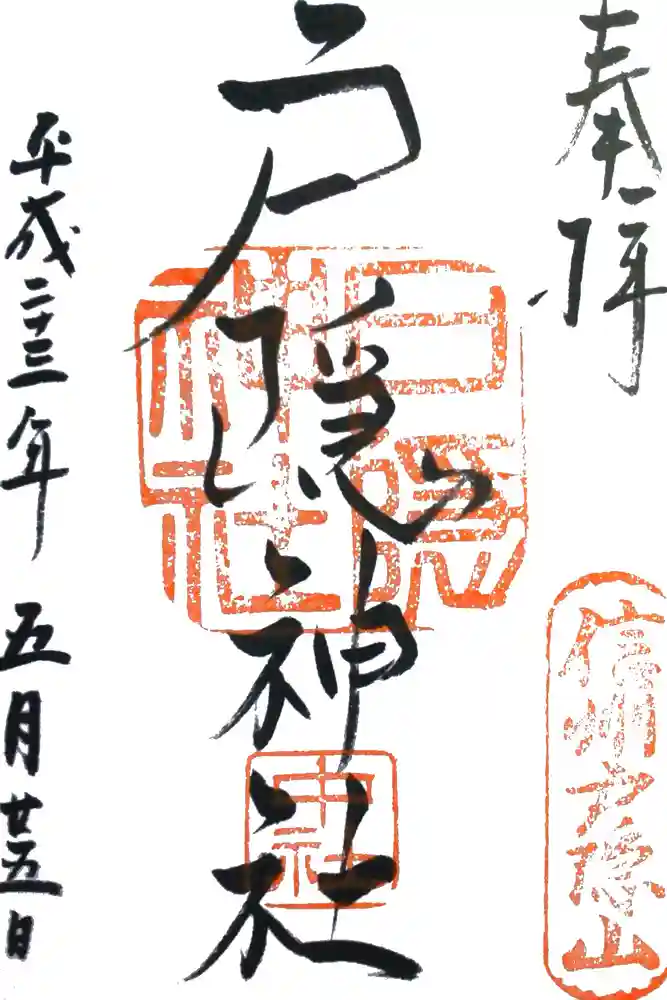 奉拝
信州戸隠山
戸隠神社
戸隠神社
中社
平成二十三年五月廿五日